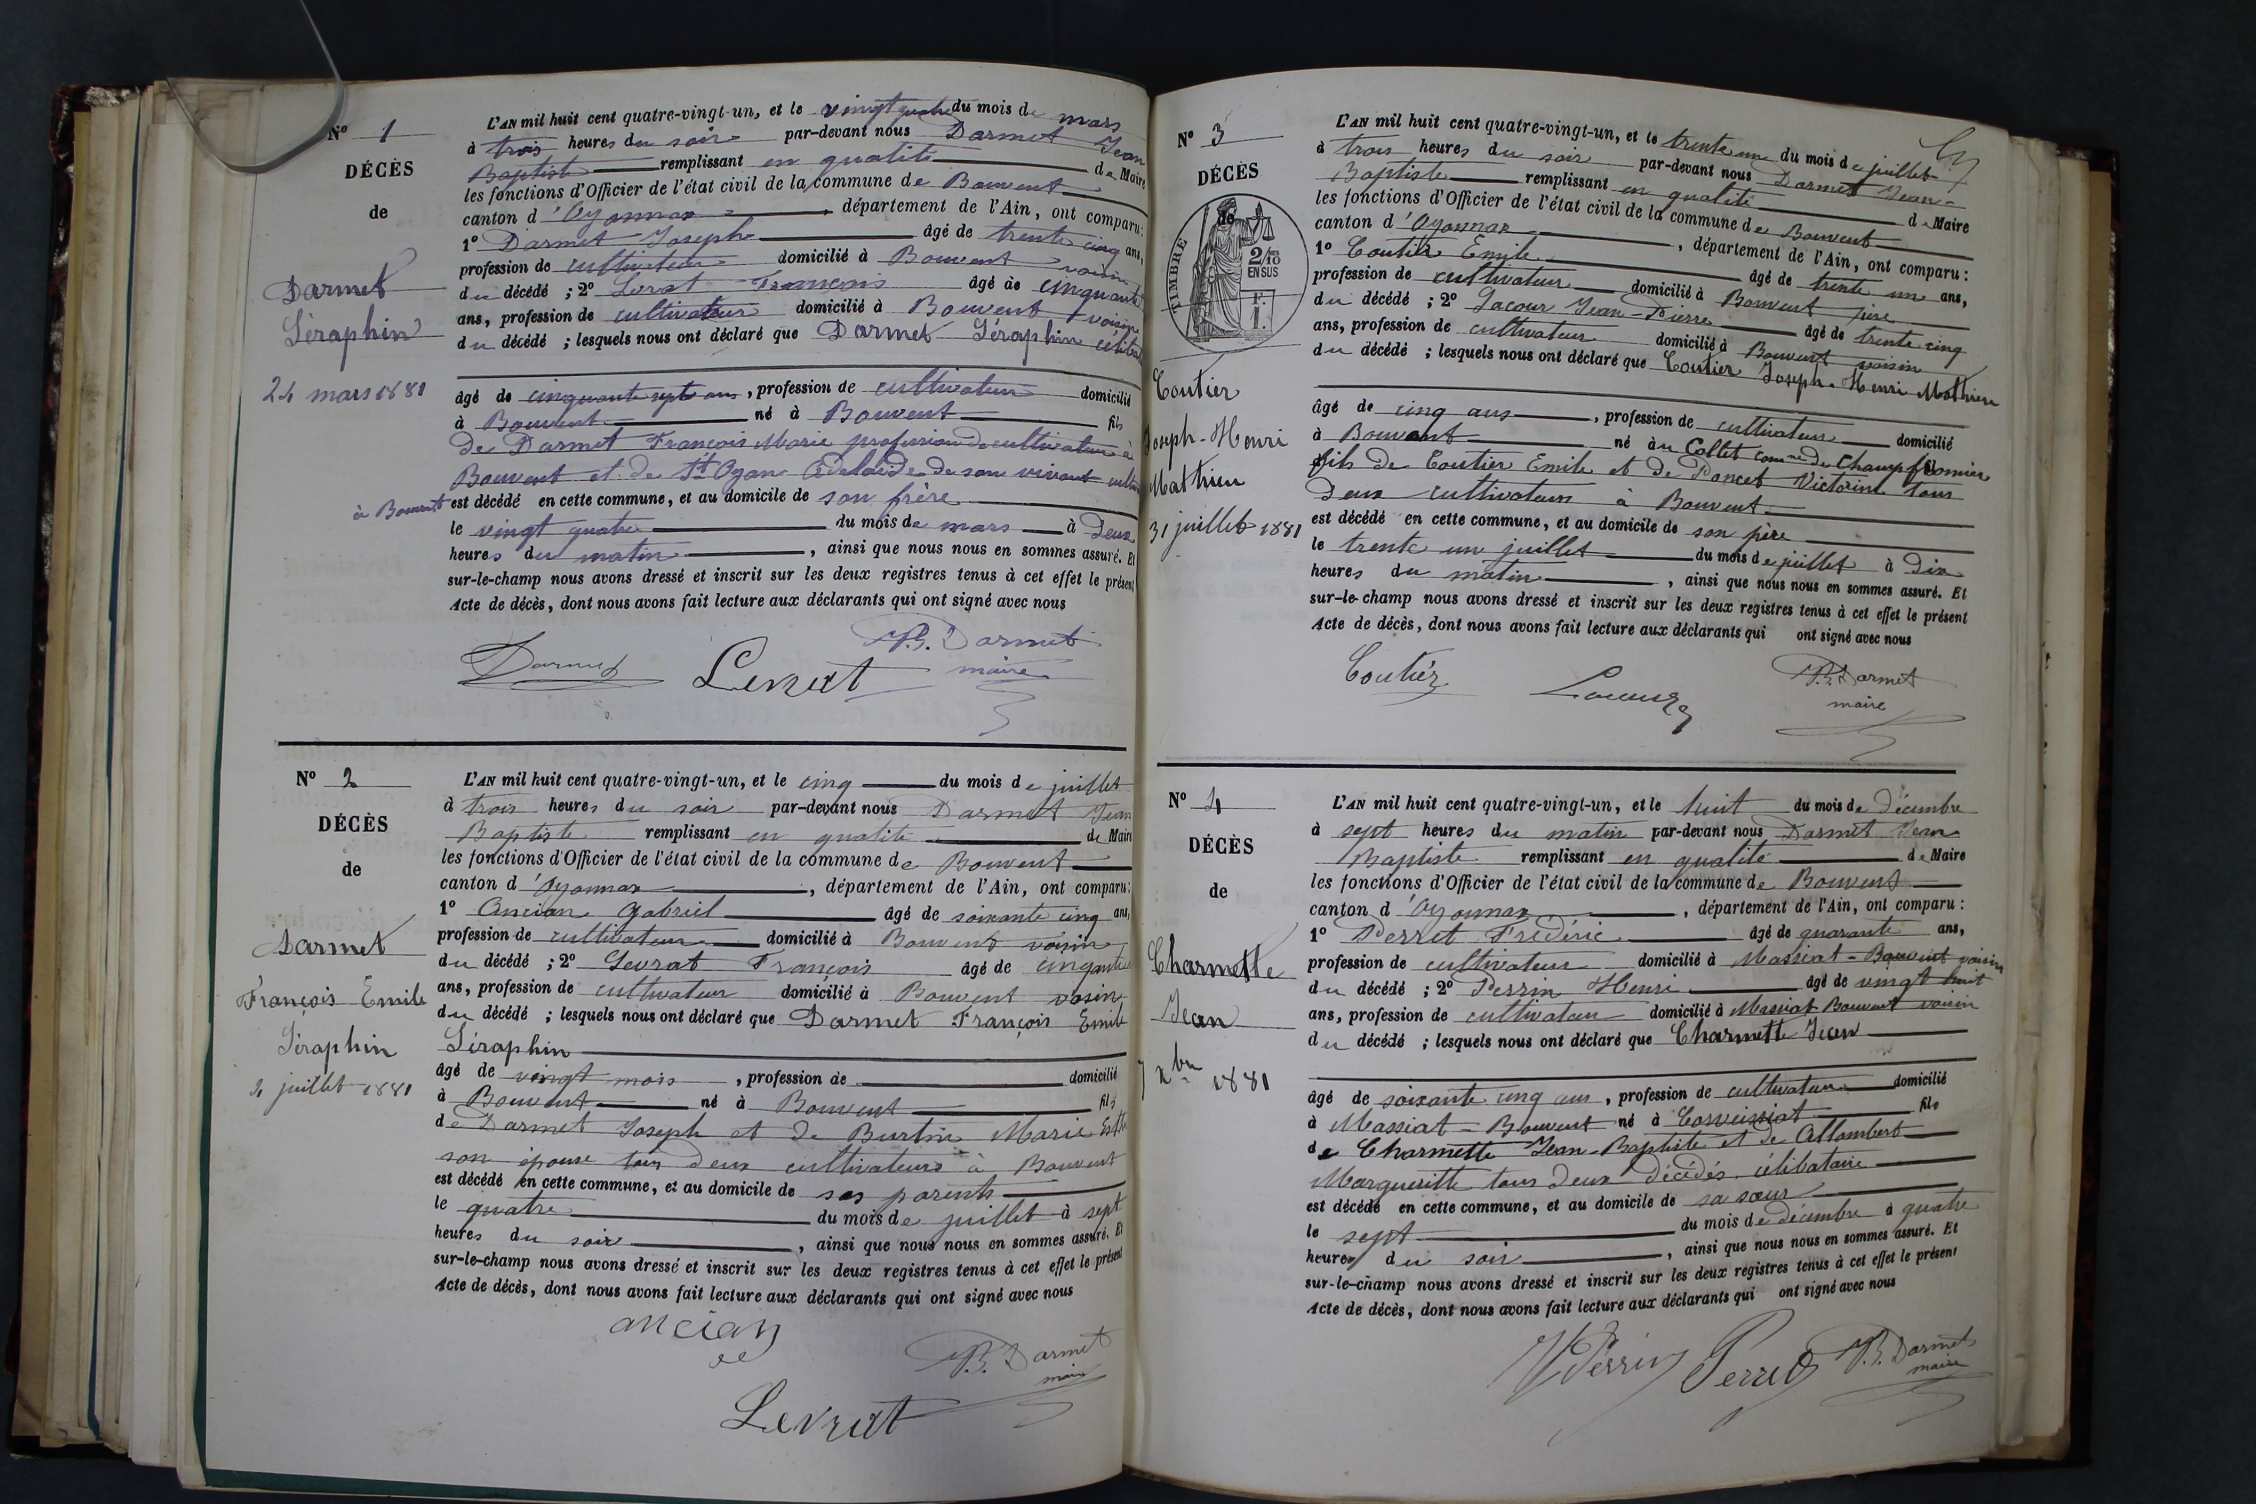 N° 1
DÉCÈS
de
Darmet
Séraphin
24 mars 1881
L'AN mil huit cent quatre-vingt-un, et le vingt quatre du mois de mars
à trois heures du soir par-devant nous Darmet Jean
Baptiste remplissant en qualité de Maire
les fonctions d'Officier de l'état civil de la commune de Bouvent
canton d'Oyonnax, département de l'Ain, ont comparu:
1° Darmet Joseph âgé de trente cinq ans,
profession de cultivateur domicilié à Bouvent voisin
du décédé ; 2° Levrat François âgé de cinquante
ans, profession de cultivateur domicilié à Bouvent voisin
du décédé ; lesquels nous ont déclaré que Darmet Séraphin céliba
âgé de cinquante sept ans, profession de cultivateur domicilié
à Bouvent né à Bouvent fils
de Darmet François Marie profession de cultivateur à
Bouvent et de St Oyan Adelaide de son vivant cultiv
à Bouvent est décédé en cette commune, et au domicile de son frère
le vingt quatre du mois de mars à Deux
heures du matin, ainsi que nous nous en sommes assuré. Et
sur-le-champ nous avons dressé et inscrit sur les deux registres tenus à cet effet le présent
Acte de décès, dont nous avons fait lecture aux déclarants qui ont signé avec nous
Darmet Levrat JB. Darmet
maire
N° 2
DÉCÈS
de
Darmet
François Emile
Séraphin
4 juillet 1881
L'AN mil huit cent quatre-vingt-un, et le cinq du mois de juillet
à trois heures du soir par-devant nous Darmet Jean
Baptiste remplissant en qualité de Maire
les fonctions d'Officier de l'état civil de la commune de Bouvent
canton d'Oyonnax, département de l'Ain, ont comparu:
1° Ancian Gabriel âgé de soixante cinq ans,
profession de cultivateur domicilié à Bouvent voisin
du décédé ; 2° Levrat François âgé de cinquante
ans, profession de cultivateur domicilié à Bouvent voisin
du décédé ; lesquels nous ont déclaré que Darmet François Emile
Séraphin
âgé de vingt mois, profession de domicilié
à Bouvent né à Bouvent fils
de Darmet Joseph et de Burtin Marie
son épouse tous deux cultivateurs à Bouvent
est décédé en cette commune, et au domicile de ses parents
le quatre du mois de juillet à sept
heures du soir, ainsi que nous nous en sommes assuré. Et
sur-le-champ nous avons dressé et inscrit sur les deux registres tenus à cet effet le présent
Acte de décès, dont nous avons fait lecture aux déclarants qui ont signé avec nous
ancian
JB. Darmet
maire
Levrat
N° 3
DÉCÈS
de
TIMBRE
2/10
EN SUS
F.
1.
Coutier
Joseph-Henri
Mathieu
31 juillet 1881
L'AN mil huit cent quatre-vingt-un, et le trente un du mois de juillet
à trois heures du soir par-devant nous Darmet Jean-
Baptiste remplissant en qualité de Maire
les fonctions d'Officier de l'état civil de la commune de Bouvent
canton d'Oyonnax, département de l'Ain, ont comparu:
1° Coutier Emile âgé de trente un ans,
profession de cultivateur domicilié à Bouvent père
du décédé ; 2° Lacour Jean-Pierre âgé de trente cinq
ans, profession de cultivateur domicilié à Bouvent voisin
du décédé ; lesquels nous ont déclaré que Coutier Joseph-Henri Mathieu
âgé de cinq ans, profession de cultivateur domicilié
à Bouvent né au Collet comne de Champfromier
fils de Coutier Emile et de Poncet Victorine tous
Deux cultivateurs à Bouvent
est décédé en cette commune, et au domicile de son père
le trente un juillet du mois de juillet à Dix
heures du matin, ainsi que nous nous en sommes assuré. Et
sur-le-champ nous avons dressé et inscrit sur les deux registres tenus à cet effet le présent
Acte de décès, dont nous avons fait lecture aux déclarants qui ont signé avec nous
Coutier Lacour JB. Darmet
maire
N° 4
DÉCÈS
de
Charmette
Jean
7 xbre 1881
L'AN mil huit cent quatre-vingt-un, et le huit du mois de Décembre
à sept heures du matin par-devant nous Darmet Jean
Baptiste remplissant en qualité de Maire
les fonctions d'Officier de l'état civil de la commune de Bouvent
canton d'Oyonnax, département de l'Ain, ont comparu:
1° Perret Frédéric âgé de quarante ans,
profession de cultivateur domicilié à Massiat-Bouvent voisin
du décédé ; 2° Perrin Henri âgé de vingt huit
ans, profession de cultivateur domicilié à Massiat Bouvent voisin
du décédé ; lesquels nous ont déclaré que Charmette Jean
âgé de soixante cinq ans, profession de cultivateur domicilié
à Massiat-Bouvent né à Corveissiat fils
de Charmette Jean-Baptiste et de Allombert
Marguerite tous Deux décédés célibataire
est décédé en cette commune, et au domicile de sa sœur
le sept du mois de décembre à quatre
heures du soir, ainsi que nous nous en sommes assuré. Et
sur-le-champ nous avons dressé et inscrit sur les deux registres tenus à cet effet le présent
Acte de décès, dont nous avons fait lecture aux déclarants qui ont signé avec nous
H Perrin Perret JB. Darmet
maire